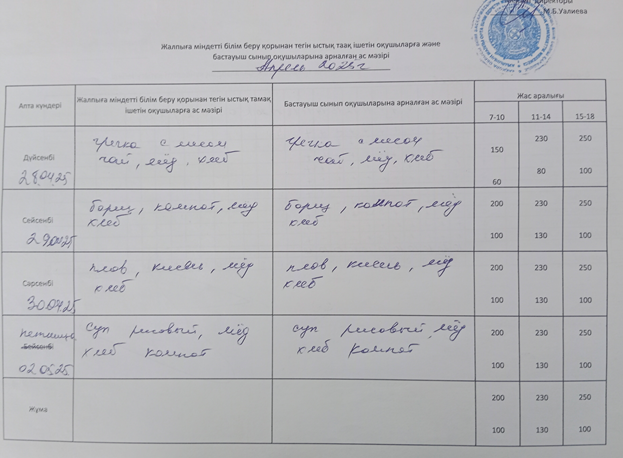 директоры
М.Б.Уалиева
Жалпыға міндетті білім беру қорынан тегін ыстық таақ ішетін оқушыларға және
бастауыш сынып оқушыларына арналған ас мәзірі
Апрель 2025г
Апта күндері
Жалпыға міндетті білім беру қорынан тегін ыстық тамақ
ішетін оқушыларға ас мәзірі
Бастауыш сынып оқушыларына арналған ас мәзірі
Жас аралығы
7-10 11-14 15-18
Дүйсенбі
28.04.25
гречка с мясом
чай, мёд, хлеб
гречка с мясом
чай, мёд, хлеб
150 230 250
60 80 100
Сейсенбі
29.04.25
борщ, компот, мёд
хлеб
борщ, компот, мёд
хлеб
200 230 250
100 130 100
Сәрсенбі
30.04.25
плов, кисель, мёд
хлеб
плов, кисель, мёд
хлеб
200 230 250
100 130 100
пятница
Бейсенбі
02.05.25
суп рисовый, мёд
хлеб компот
суп рисовый, мёд
хлеб компот
200 230 250
100 130 100
Жұма
200 230 250
100 130 100